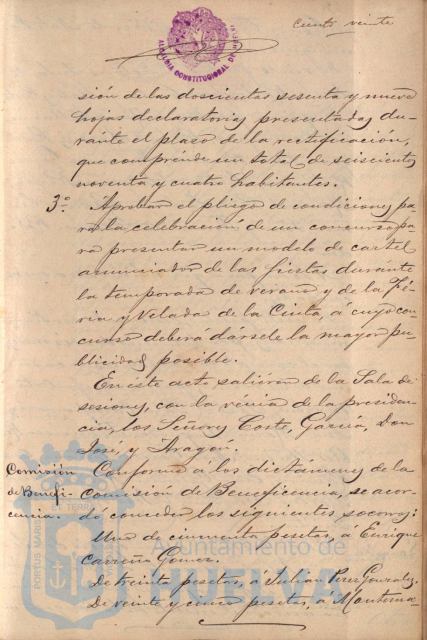 ciento veinte
ALCALDIA CONSTITUCIONAL DE
sión de las doscientas sesenta y nueve
hojas declaratorias presentadas du-
rante el plazo de la rectificación,
que comprende un total de seiscientos
noventa y cuatro habitantes.
3º. Aprobar el pliego de condiciones pa-
ra la celebración de un concurso pa-
ra presentar un modelo de cartel
anunciador de las fiestas durante
la temporada de verano y de la Fé-
ria y Velada de la Cinta, á cuyo con-
curso deberá dársele la mayor pu-
blicidad posible.
En este acto salieron de la Sala de
sesiones, con la vénia de la presiden-
cia, los Señores Corte, García, Don
José, y Aragón.
Comisión
de Benefi-
cencia.
Conforme a los dictámenes de la
Comisión de Beneficencia, se acor-
dó conceder los siguientes socorros:
Uno de cincuenta pesetas, á Enrique
Carreño Gomez.
De treinta pesetas, a Julian Perez Gonzalez.
De veinte y cinco pesetas, á
PORTUS MARIS
ET TERRÆ
Ayuntamiento de
HUELVA